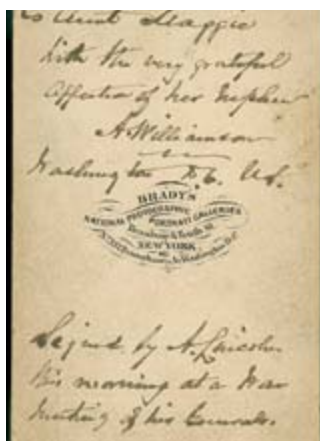 to Aunt Maggie
with the very grateful
affection of her Nephew
A Williamson
Washington D.C. U.S.
BRADY'S
NATIONAL PHOTOGRAPHIC
PORTRAIT GALLERIES
Broadway & Tenth St.
NEW YORK
& Pennsylvania Av. Washington D.C.
Signed by A. Lincoln
this morning at a War
meeting of his Generals.